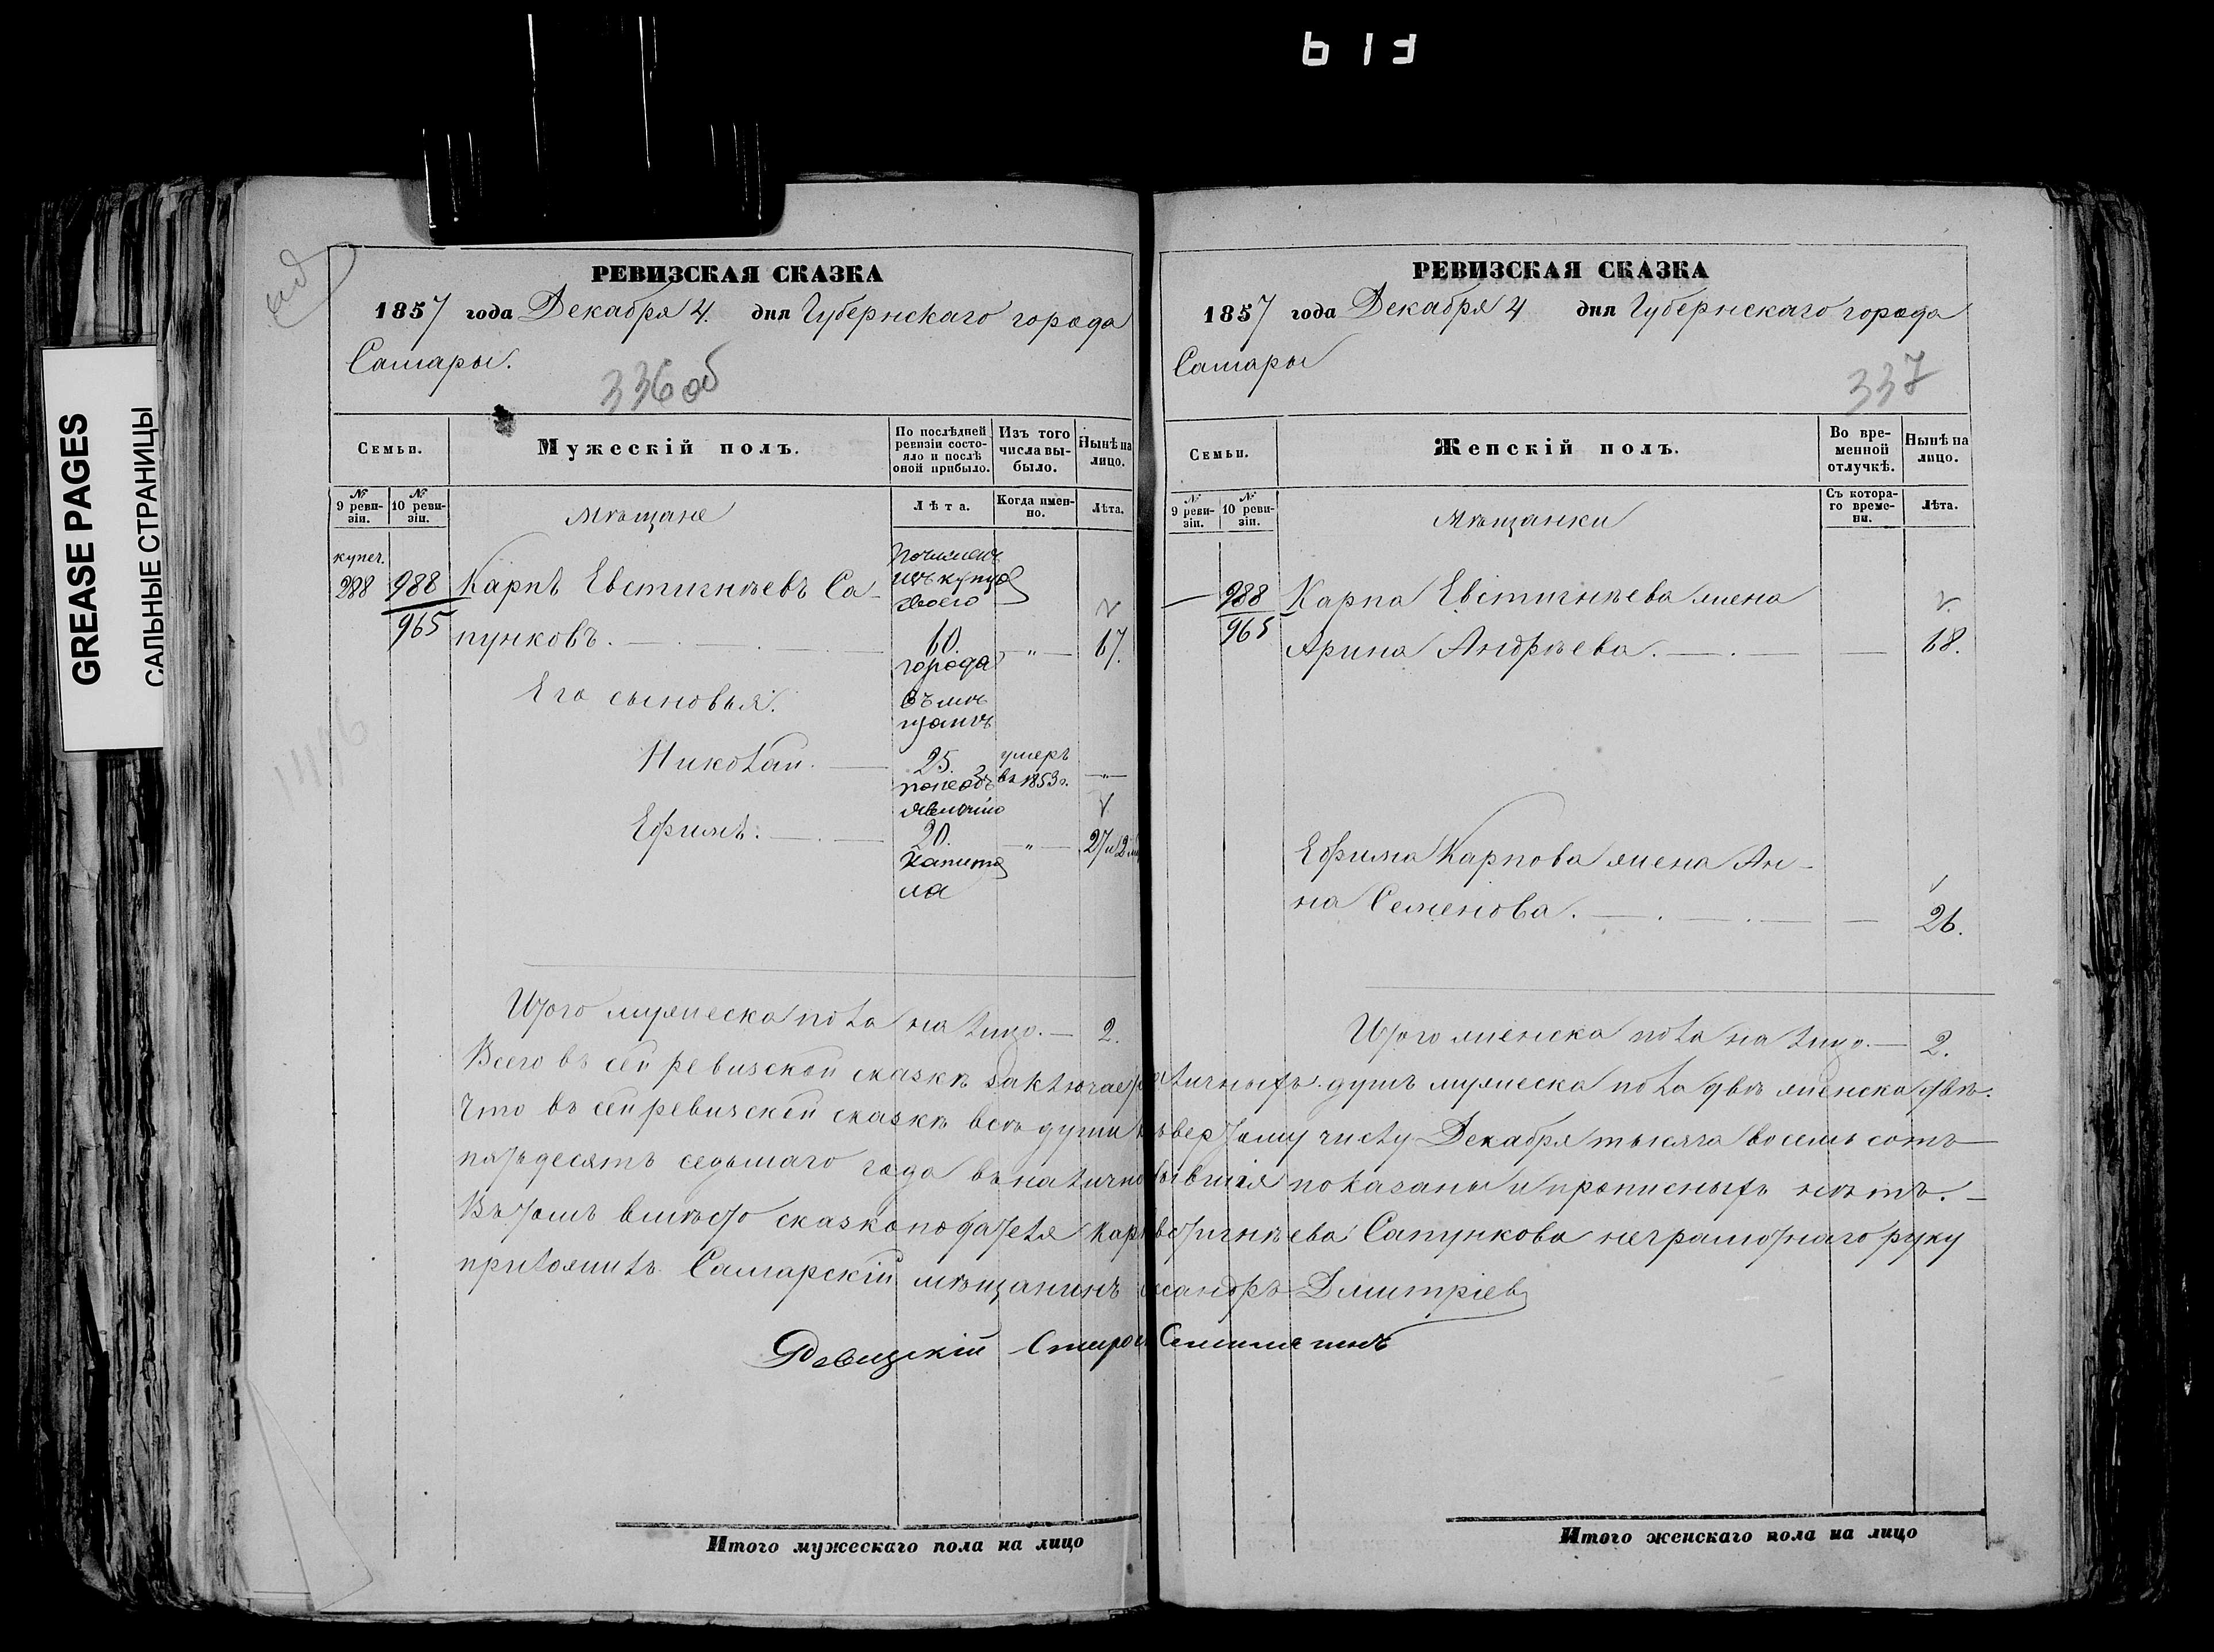 613
GREASE PAGES
САЛЬНЫЕ СТРАНИЦЫ
РЕВИЗСКАЯ СКАЗКА
1857 года Декабря 4. дня Губернскаго города
Самары.
336 об
Семьи.
Мужескій полъ.
По послѣдней ревизіи состояло и послѣ оной прибыло.
Изъ того числа выбыло.
Нынѣ на лицо.
№ 9 ревизіи.
№ 10 ревизіи.
Мѣщане
Лѣта.
Когда именно.
Лѣта.
купеч.
288 988 Карпъ Евстигнѣевъ Са-
965 пунковъ. 60. — " — 67.
города
Его сыновья.
Николай. 25. умеръ въ 1853 г. — " —
Ефимъ. 20. — " — 27 и
капита
ла
Итого мужеска пола на лицо. — 2.
РЕВИЗСКАЯ СКАЗКА
1857 года Декабря 4 дня Губернскаго города
Самары
337
Семьи.
Женскій полъ.
Во временной отлучкѣ.
Нынѣ на лицо.
№ 9 ревизіи.
№ 10 ревизіи.
Мѣщанки
Съ котораго времени.
Лѣта.
— 988 Карпа Евстигнѣева жена
965 Арина Андрѣева. — 68.
Ефима Карпова жена Ан-
на Семенова. — 26.
Итого женска пола на лицо. — 2.
Всего въ сей ревизской сказкѣ заключае наличныхъ душъ мужеска пола двѣ женска двѣ.
Что въ сей ревизской сказкѣ всѣ души четвертому числу Декабря тысяча восемь сотъ
пятьдесятъ седьмаго года въ налично бывшія показаны и прописныхъ нѣтъ. —
Въ томъ вмѣсто сказкоподателя Карп встигнѣева Сапункова неграмотнаго руку
приложилъ Самарскій мѣщанинъ ксандръ Дмитріев
Ревизскій Старо
Итого мужескаго пола на лицо
Итого женскаго пола на лицо